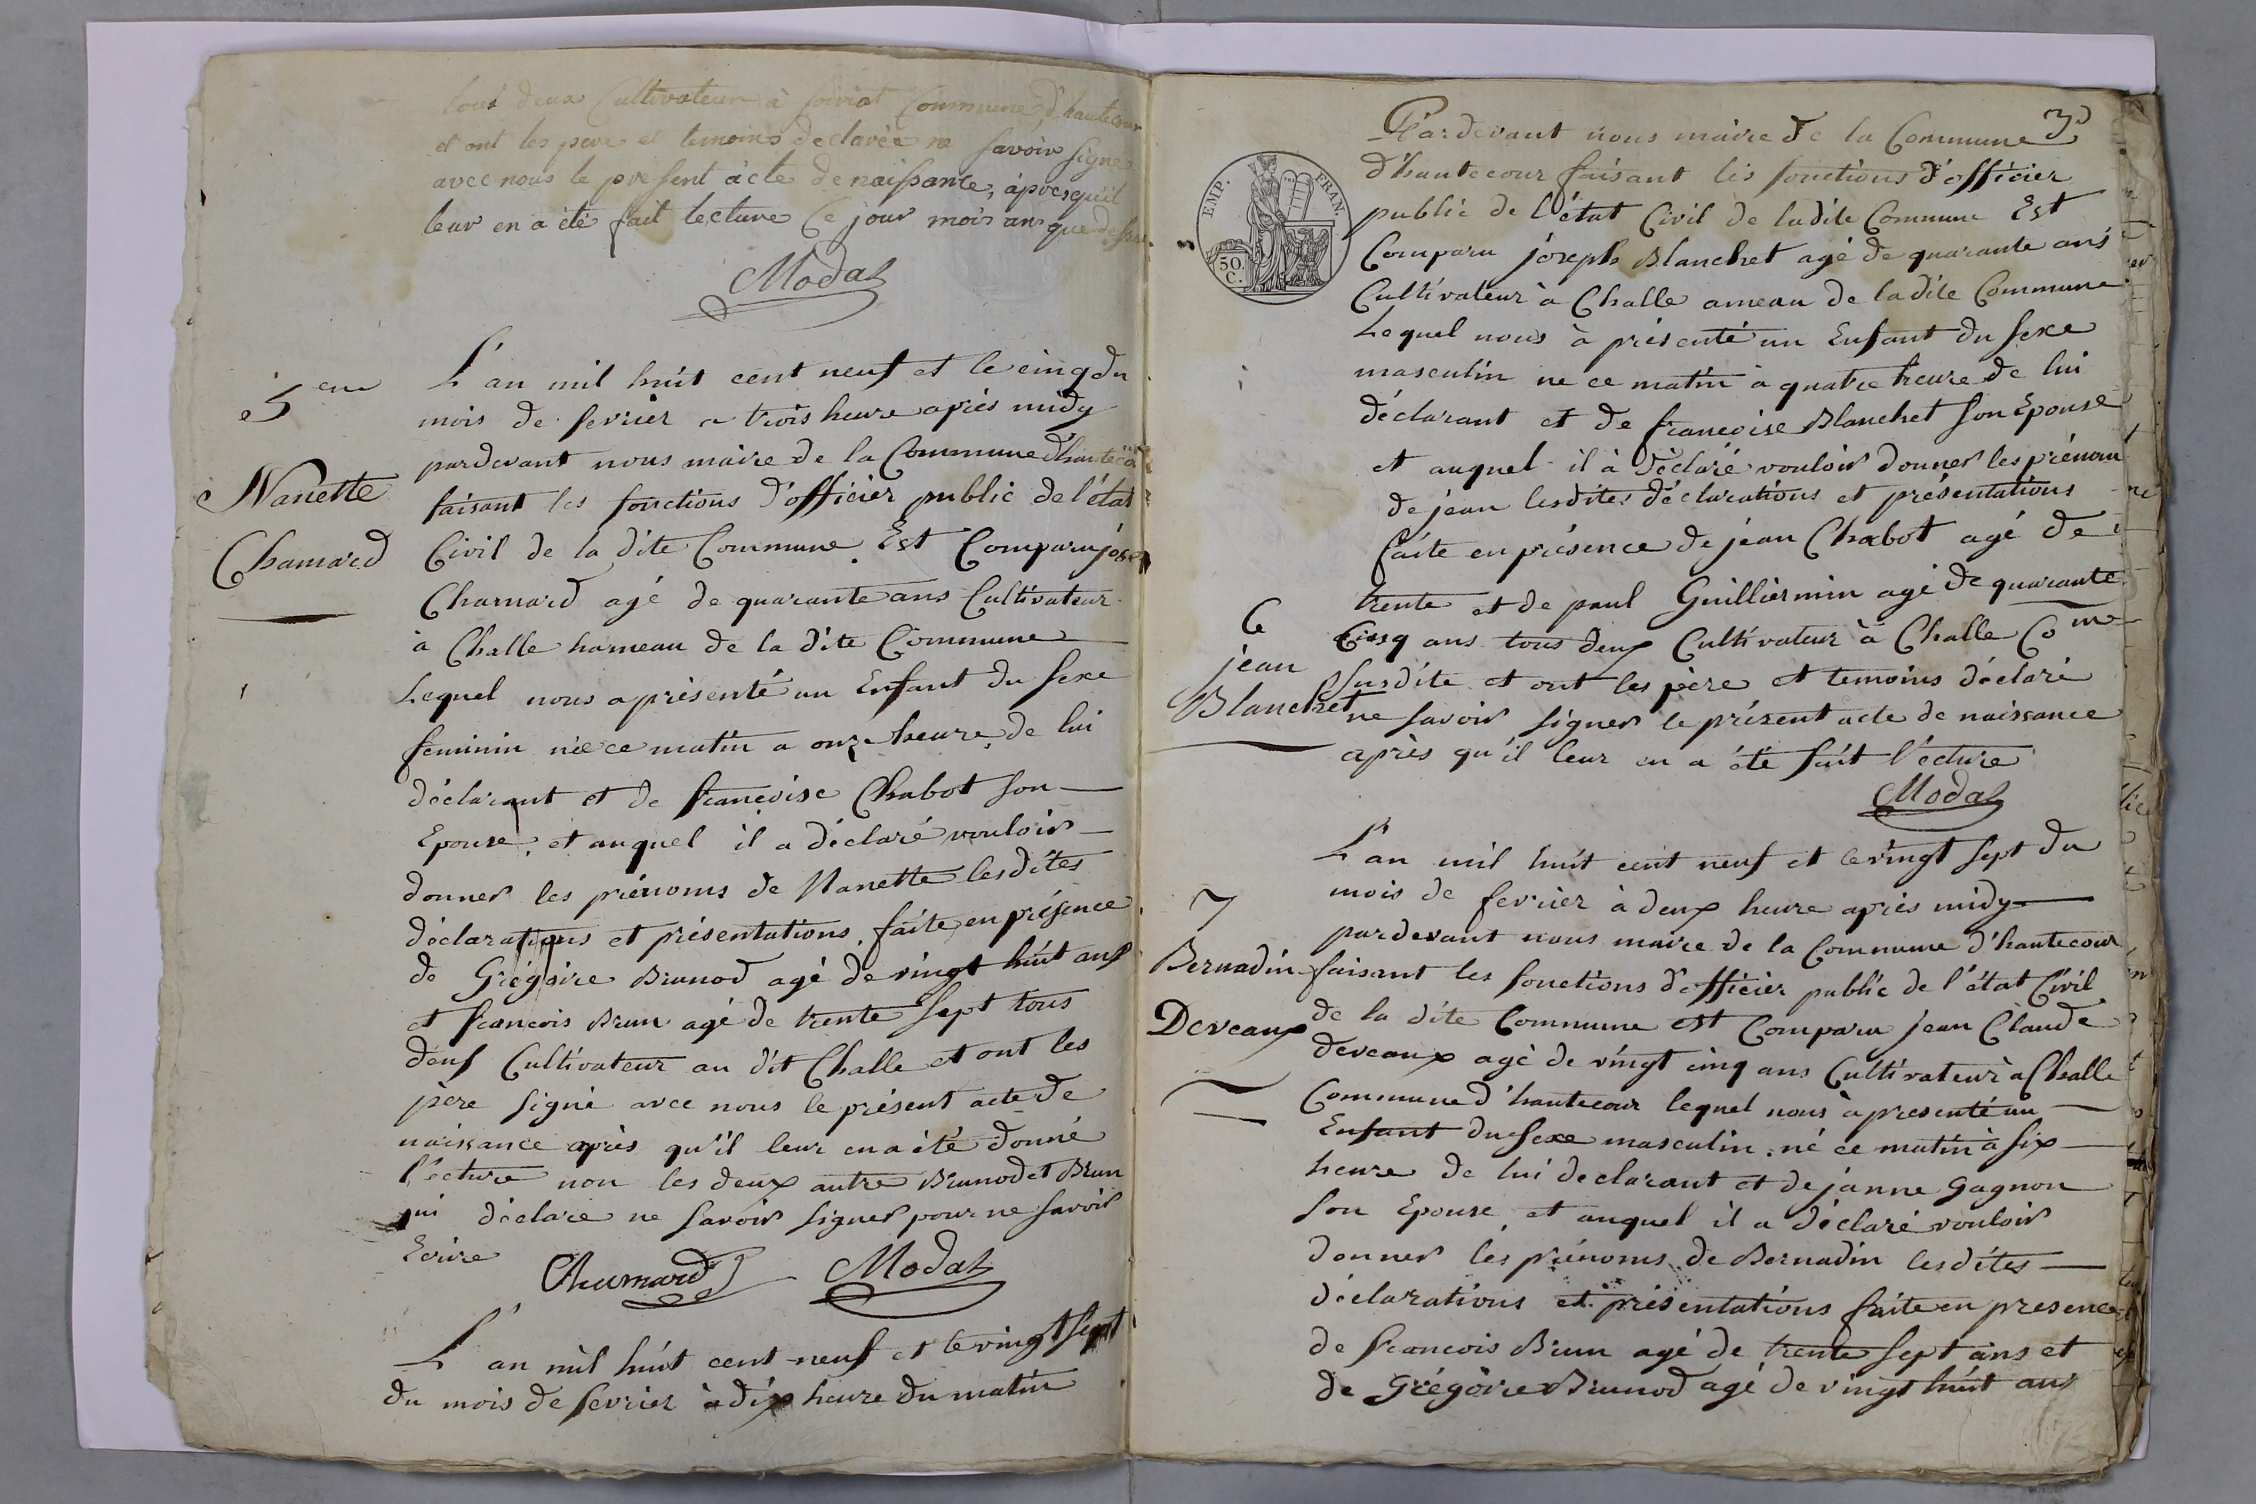 tous deux Cultivateur à Soiriat Commune d'hautecour
et ont les pere et temoins declarée ne savoir signé
avec nous le present acte de naissance, àprèsqu'il
leur en a été fait lecture Ce jour mois an que dessus
Modas
5eme
Nanette
Chamard
L'an mil huit cent neuf et le cinq du
mois de fevrier a trois heure après midy
pardevant nous maire de la Commune d'hautecour
faisant les fonctions d'officier public de l'état
Civil de la dite Commune. Est Comparu jose
Chamard agé de quarante ans Cultivateur
à Challe hameau de la dite Commune
Lequel nous a présenté un Enfant du sexe
feminin née ce matin a onze heure de lui
déclarant et de francoise Chabot son
Epouse, et auquel il a déclaré vouloir
donner les prénoms de Nanette lesdites
déclarations et présentations, faite en présence
de Grégoire Brunod agé de vingt huit ans
et francois Brun agé de trente sept tous
deux Cultivateur au dit Challe et ont les
père signé avec nous le présent acte de
naissance après qu'il leur en a été donné
l'écture non les deux autre Brunod et Brun
qui déclare ne savoir signer pour ne savoir
Ecrire
Chamard Modas
L'an mil huit cent neuf et le vingt sept
du mois de fevrier à dix heure du matin
3
EMP. FRAN.
50.
C.
Pardevant nous maire de la Commune
d'hautecour faisant les fonctions d'officier
public de l'état Civil de ladite Commune Est
Comparu joseph Blanchet agé de quarante ans
Cultivateur à Challe ameau de ladite Commune
Lequel nous à présenté un Enfant du sexe
masculin ne ce matin à quatre heure de lui
déclarant et de francoise Blanchet son Epouse
et auquel il à déclaré vouloir donner les prénom
de jean lesdites déclarations et présentations
faite en présence de jean Chabot agé de
trente et de paul Guilliermin agé de quarante
Cinq ans tous deux Cultivateur à Challe Com
6
jean
Blanchet
susdite et ont les père et temoins déclaré
ne savoir signer le présent acte de naissance
après qu'il leur en a été fait l'écture
Modas
L'an mil huit cent neuf et le vingt sept du
mois de fevrier à deux heure après midy
pardevant nous maire de la Commune d'hautecour
7
Bernadin
Deveaux
faisant les fonctions d'officier public de l'état Civil
de la dite Commune est Comparu jean Claude
deveaux agé de vingt cinq ans Cultivateur à Challe
Commune d'hautecour lequel nous à presenté un
Enfant du sexe masculin né ce matin à six
heure de lui declarant et de janne Gagnon
son Epouse, et auquel il a déclaré vouloir
donner les prénoms de Bernadin lesdites
déclarations et présentations faite en presence
de francois Brun agé de trente sept ans et
de Grégoire Brunod agé de vingt huit ans